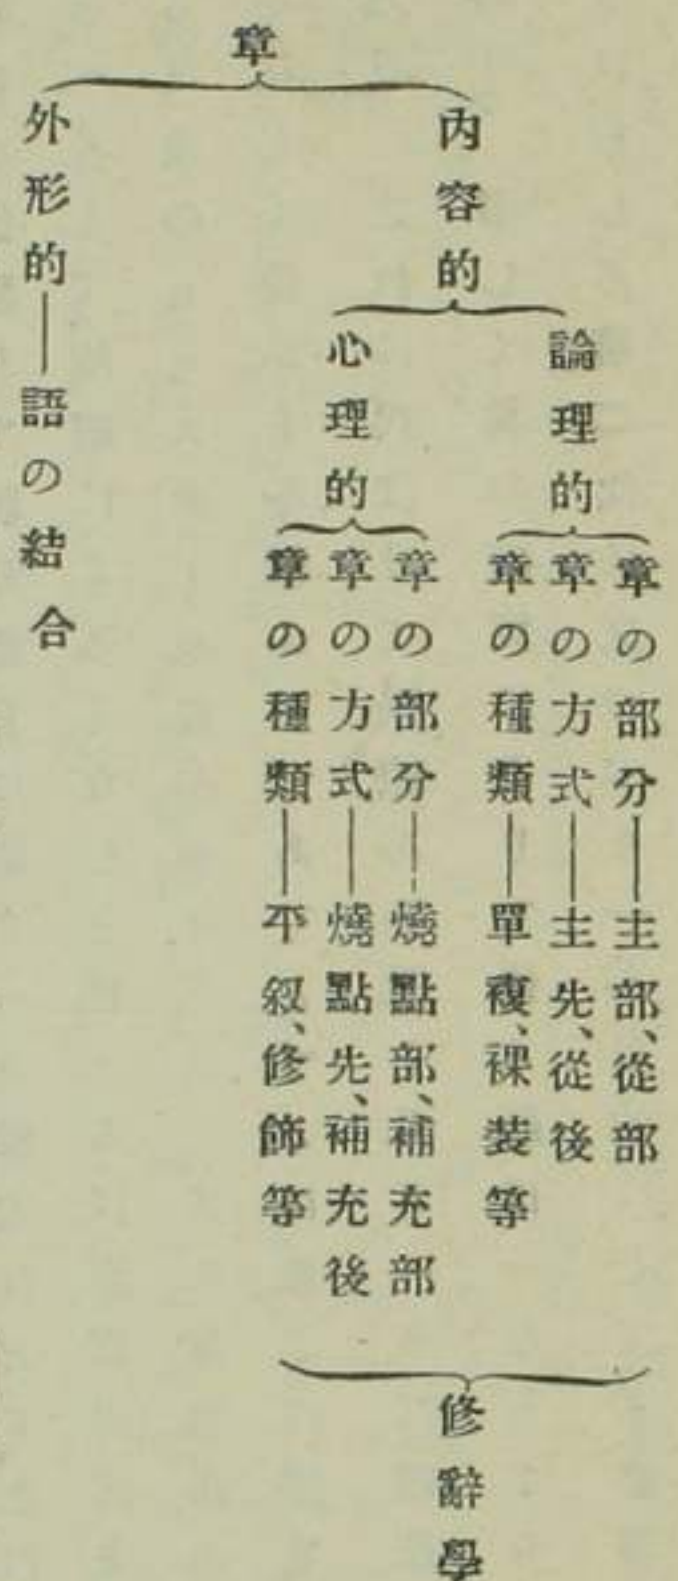 章
内容的
論理的
章の部分——主部、從部
章の方式——主先、從後
章の種類——單複、裸装等
心理的
章の部分——燒點部、補充部
章の方式——燒點先、補充後
章の種類——平叙、修飾等
修辭學
外形的——語の結合